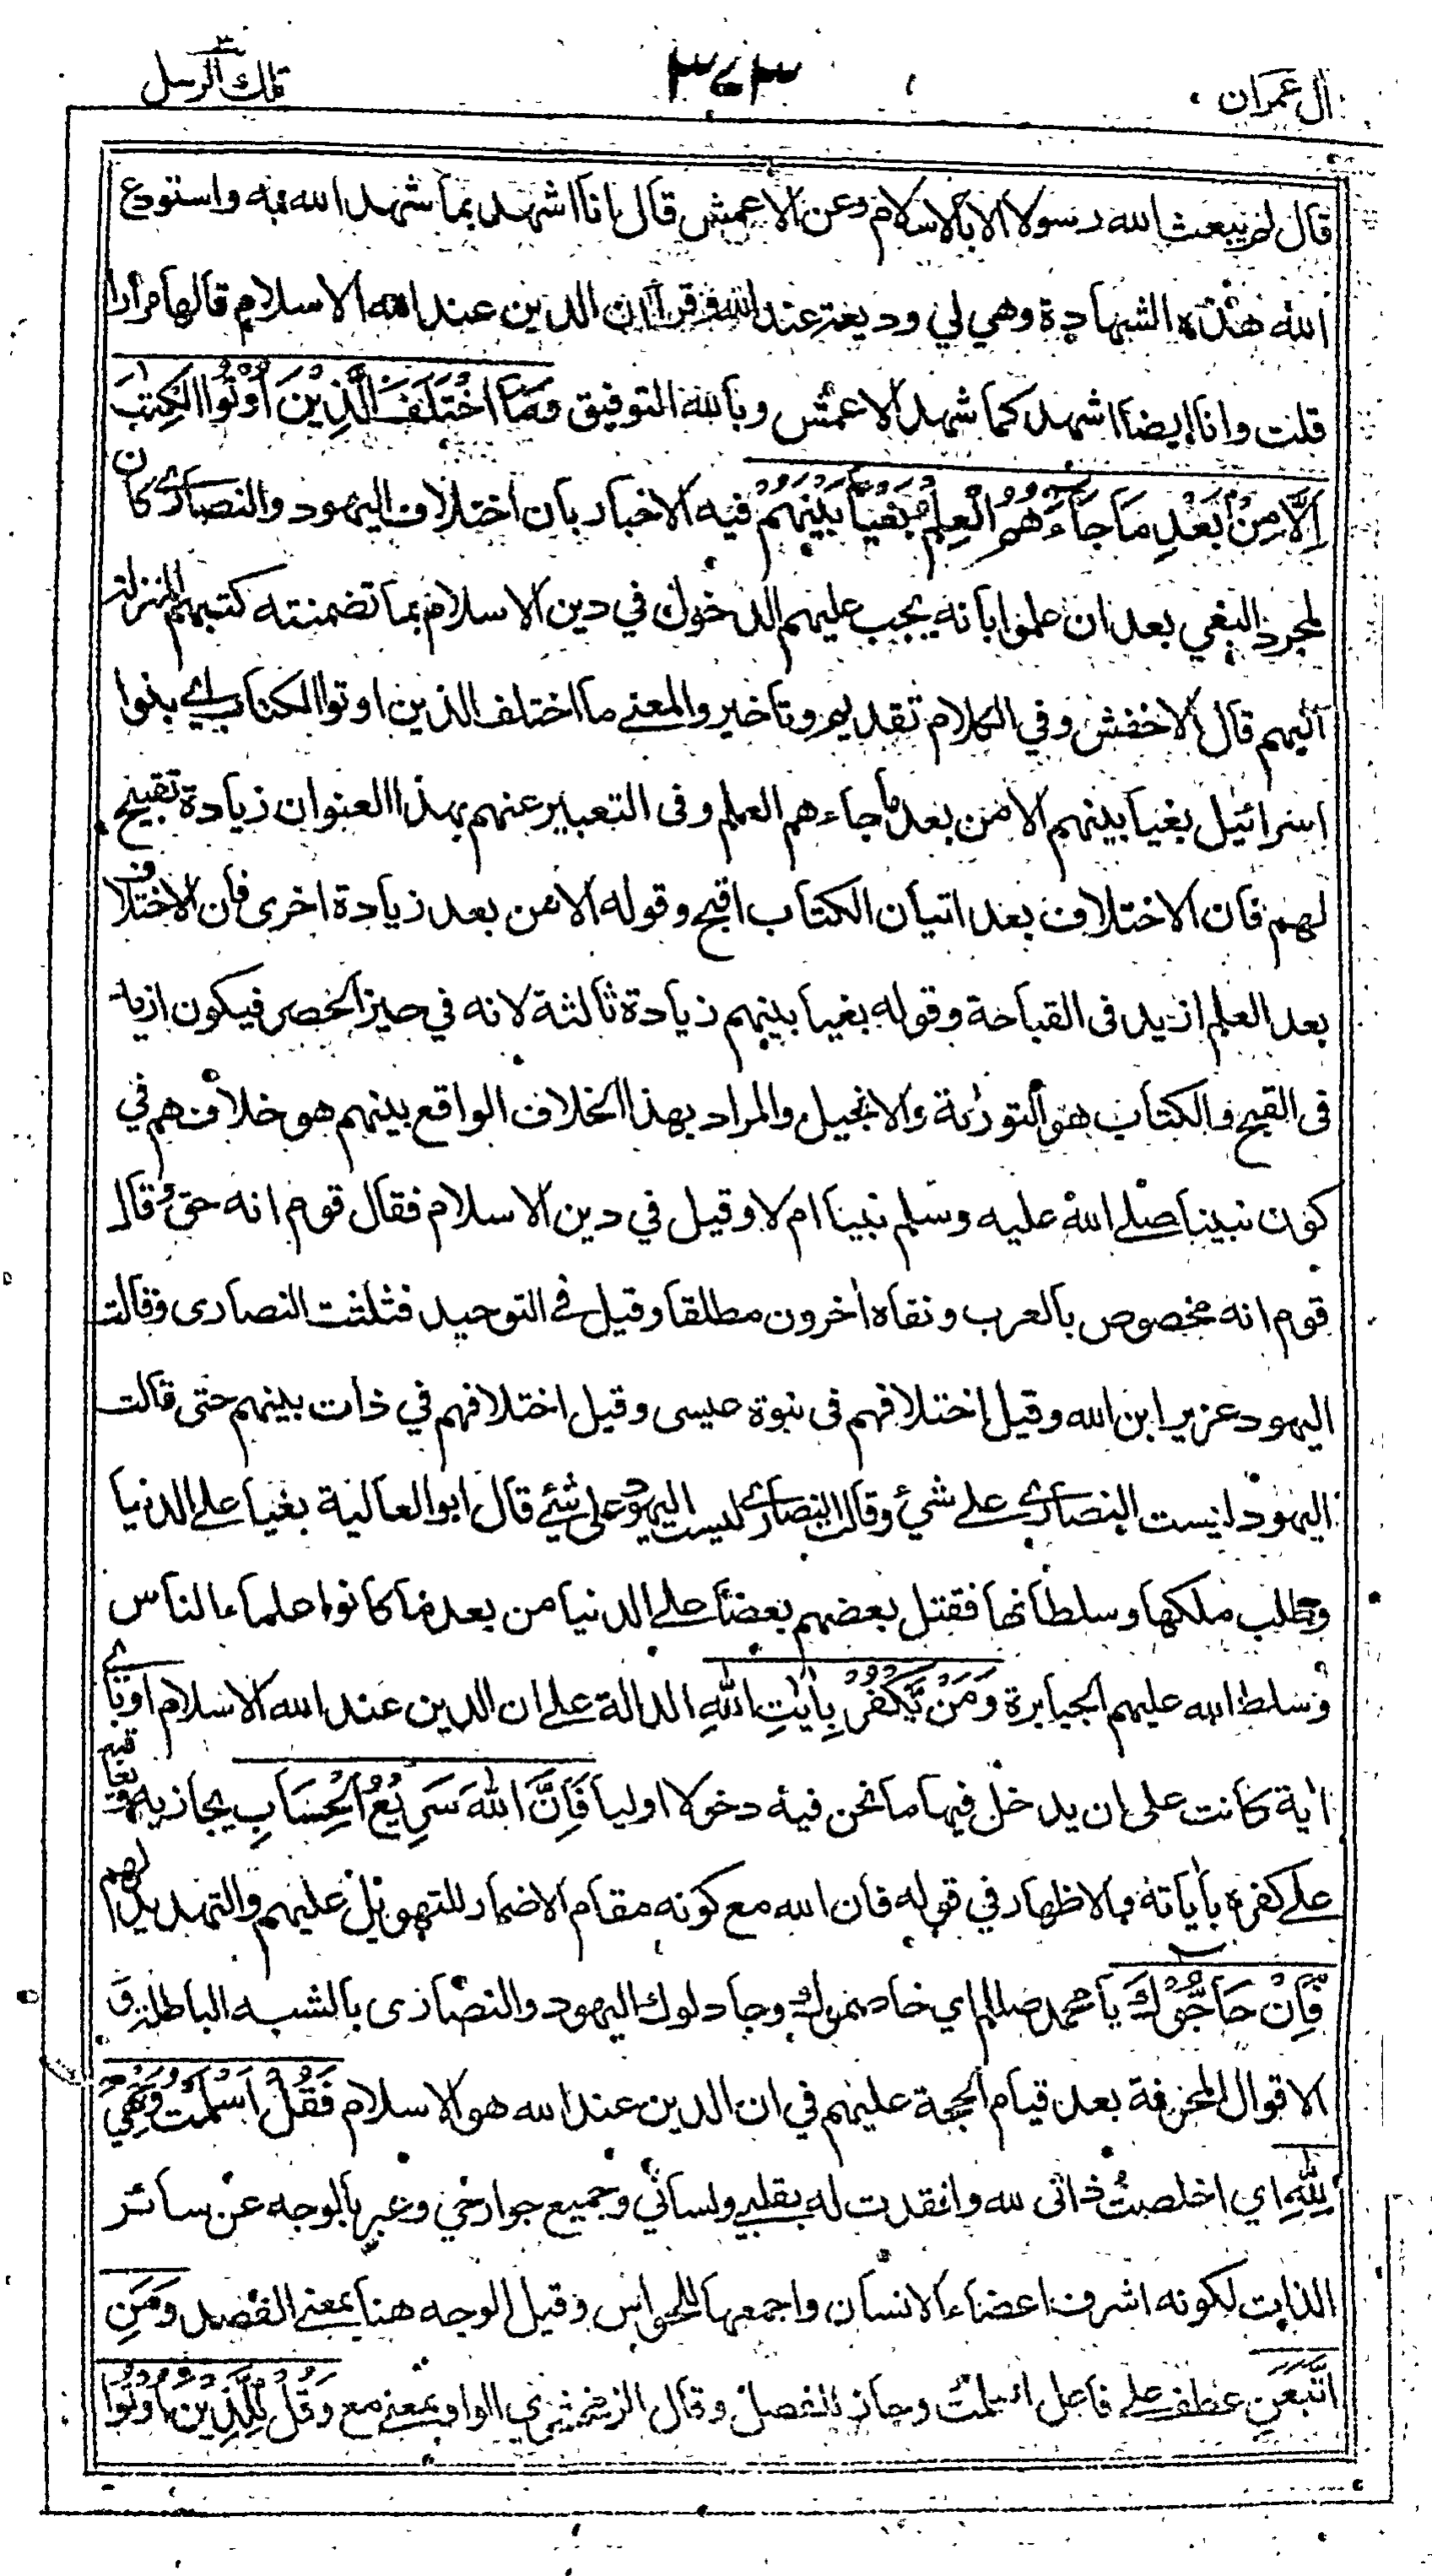 ال عمران
٣٤٣
تلك الرسل ٣
قال لم يبعث الله رسولا الا بالاسلام وعن الاعمش قال انا اشهد بما شهد الله به واستودع
الله هذه الشهادة وهي لي وديعة عند الله فقرأ ان الدين عند الله الاسلام قالها مرارا
قلت وانا ايضا اشهد كما شهد الاعمش وبالله التوفيق وَمَا اخْتَلَفَ الَّذِيْنَ اُوْتُوا الْكِتٰبَ
اِلَّا مِنْۢ بَعْدِ مَا جَآءَهُمُ الْعِلْمُ بَغْيًاۢ بَيْنَهُمْ فيه الاخبار بان اختلاف اليهود والنصارى كان
لمجرد البغي بعد ان علموا بانه يجب عليهم الدخول في دين الاسلام بما تضمنته كتبهم المنزلة
اليهم قال الاخفش وفي الكلام تقديم وتاخير والمعنى ما اختلف الذين اوتوا الكتاب اي بنوا
اسرائيل بغيا بينهم الا من بعد ما جاءهم العلم وفى التعبير عنهم بهذا العنوان زيادة تقبيح
لهم فان الاختلاف بعد اتيان الكتاب اقبح وقوله الا من بعد زيادة اخرى فان الاختلاف
بعد العلم ازيد فى القباحة وقوله بغيا بينهم زيادة ثالثة لانه في حيز الحصر فيكون ازيد
فى القبح والكتاب هو التورٰىة والانجيل والمراد بهذا الخلاف الواقع بينهم هو خلافهم في
كون نبينا صلى الله عليه وسلم نبينا ام لا وقيل في دين الاسلام فقال قوم انه حق وقال
قوم انه مخصوص بالعرب ونفاه اخرون مطلقا وقيل في التوحيد فثلثت النصارى وقالت
اليهود عزير ابن الله وقيل اختلافهم فى نبوة عيسى وقيل اختلافهم في ذات بينهم حتى قالت
اليهود ليست النصارى على شيء وقالت النصارى ليست اليهود على شيء قال ابو العالية بغيا على الدنيا
وطلب ملكها وسلطانها فقتل بعضهم بعضا على الدنيا من بعد ما كانوا علماء الناس
وسلط الله عليهم الجبابرة وَمَنْ يَّكْفُرْ بِاٰيٰتِ اللهِ الدالة على ان الدين عند الله الاسلام او باي
اٰية كانت على ان يدخل فيها ما نحن فيه دخولا اوليا فَاِنَّ اللهَ سَرِيْعُ الْحِسَابِ يجازيه ويعاقبه
على كفره بآياته والاظهار في قوله فان الله مع كونه مقام الاضمار للتهويل عليهم والتهديد لهم
فَاِنْ حَاۤجُّوْكَ يا محمد صللم اي خاصموك وجادلوك اليهود والنصارى بالشبه الباطلة و
الاقوال المحرفة بعد قيام الحجة عليهم في ان الدين عند الله هو الاسلام فَقُلْ اَسْلَمْتُ وَجْهِيَ
لِلّٰهِ اي اخلصت ذاتى لله وانقدت له بقلبي ولساني وجميع جوارحي وعبر بالوجه عن سائر
الذات لكونه اشرف اعضاء الانسان واجمعها للحواس وقيل الوجه هنا بمعنى القصد وَمَنِ
اتَّبَعَنِ عطف على فاعل اسلمت وجاز للفصل وقال الزمخشري الواو بمعنى مع وَقُلْ لِّلَّذِيْنَ اُوْتُوا